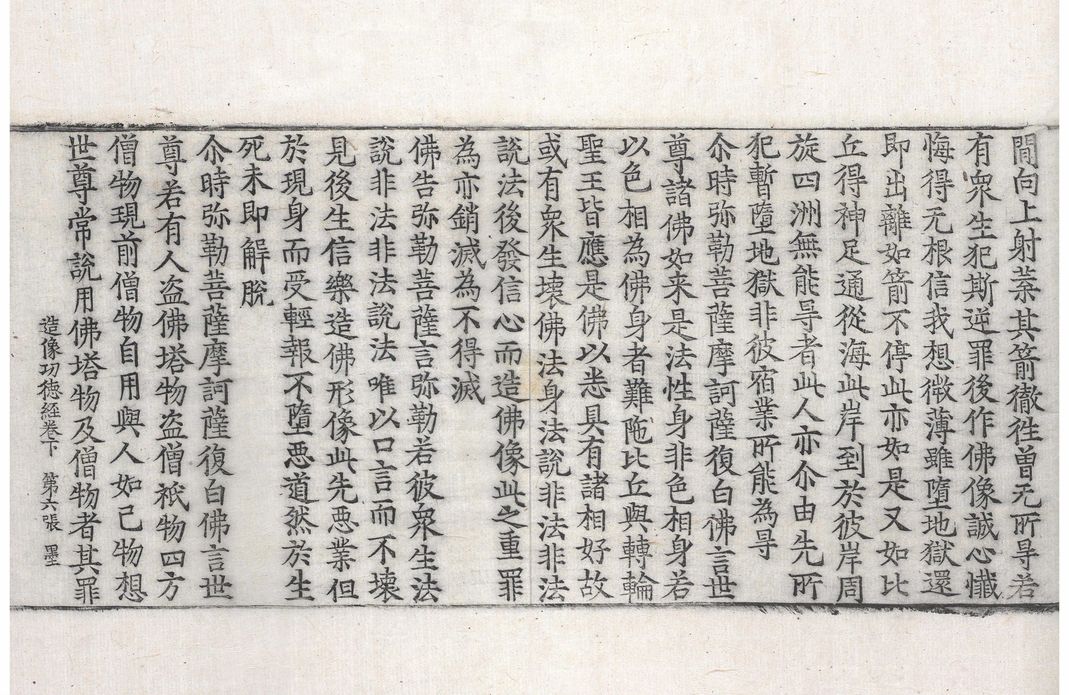 間向上射葉其箭徹徃曾无所㝵若
有衆生犯斯逆罪後作佛像誠心懺
悔得无根信我想微薄雖墮地獄還
即出離如箭不停此亦如是又如比
丘得神足通從海此岸到於彼岸周
旋四洲無能㝵者此人亦尒由先所
犯暫墮地獄非彼宿業所能為㝵
尒時弥勒菩薩摩訶薩復白佛言世
尊諸佛如来是法性身非色相身若
以色相為佛身者難陁比丘與轉輪
聖王皆應是佛以悉具有諸相好故
或有衆生壞佛法身法說非法非法
說法後發信心而造佛像此之重罪
為亦銷滅為不得滅
佛告弥勒菩薩言弥勒若彼衆生法
說非法非法說法唯以口言而不壞
見後生信樂造佛形像此先惡業但
於現身而受輕報不墮惡道然於生
死未即解脫
尒時弥勒菩薩摩訶薩復白佛言世
尊若有人盗佛塔物盗僧祇物四方
僧物現前僧物自用與人如己物想
世尊常說用佛塔物及僧物者其罪
造像功德經卷下 第六張 墨